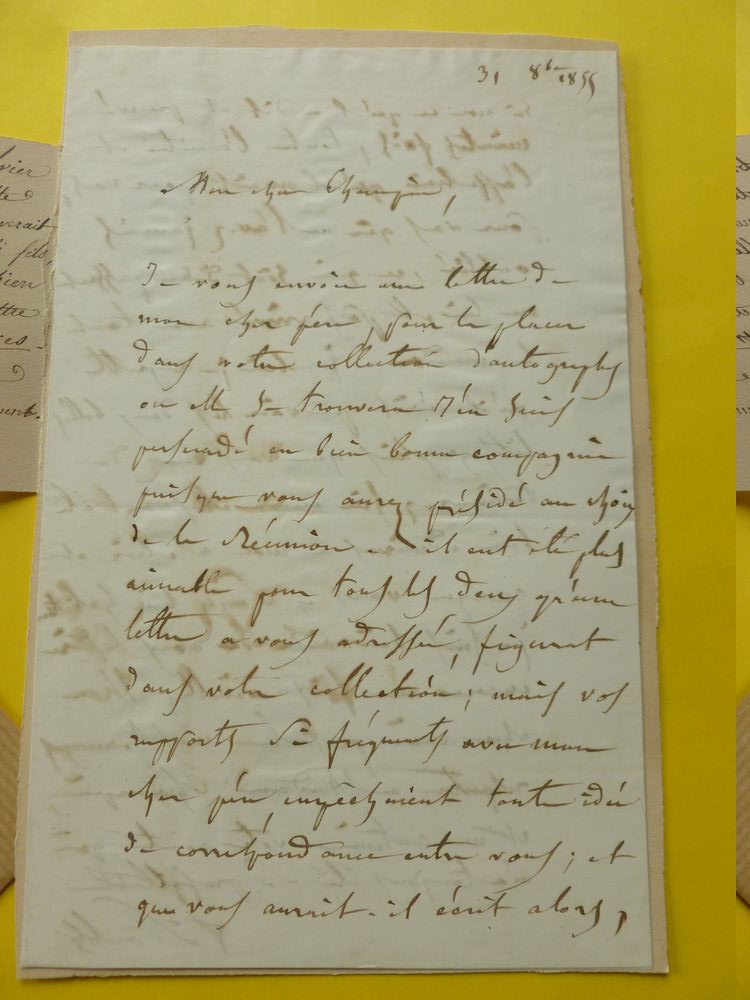 31 8bre 1855
Mon cher
Je vous envoie une lettre de
mon cher père, pour la placer
dans votre collection d'autographes
ou elle se trouvera j'en suis
persuadé en bien bonne compagnie
puisque vous aurez présidé au choix
de la Réunion. il eut été plus
aimable pour tous les deux qu'une
lettre a vous adressée, figurat
dans votre collection; mais vos
rapports si fréquents avec mon
cher père, empêchaient toute idée
de correspondance entre vous; et
que vous aurait-il écrit alors,